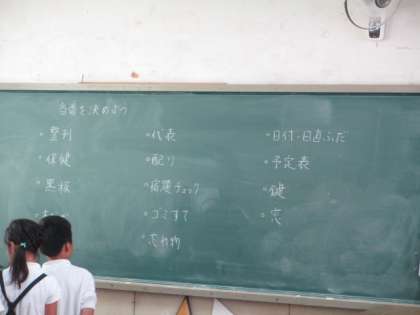 当番を決めよう
・整列
・保健
・黒板
・代表
・配り
・宿題チェック
・ゴミすて
・忘れ物
・日付・日直ふだ
・予定表
・鍵
・窓